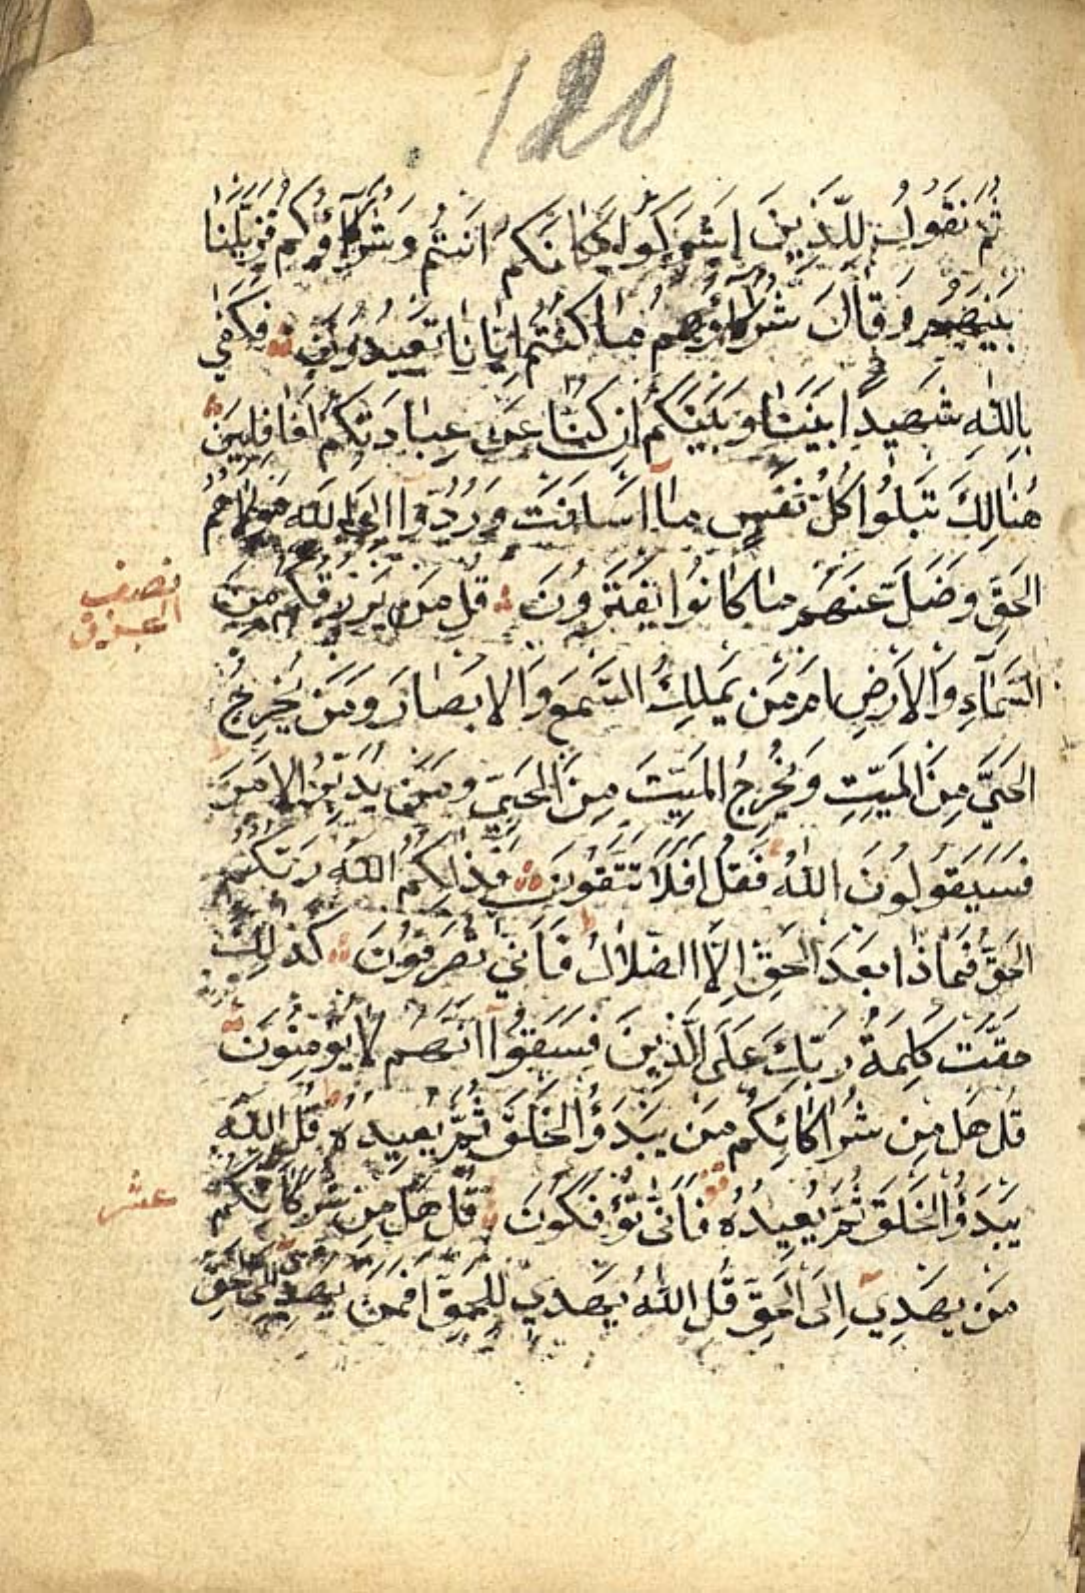 120
ثُمَّ نَقُولُ لِلَّذِينَ اَشْرَكُوا مَكَانَكُمْ اَنْتُمْ وَشُرَكَآؤُكُمْ فَزَيَّلْنَا
بَيْنَهُمْ وَقَالَ شُرَكَآؤُهُمْ مَا كُنْتُمْ اِيَّانَا تَعْبُدُونَ فَكَفٰى
بِاللّٰهِ شَهِيدًا بَيْنَنَا وَبَيْنَكُمْ اِنْ كُنَّا عَنْ عِبَادَتِكُمْ لَغَافِلِينَ
هُنَالِكَ تَبْلُوا كُلُّ نَفْسٍ مَآ اَسْلَفَتْ وَرُدُّوٓا اِلَى اللّٰهِ مَوْلٰيهُمُ
الْحَقِّ وَضَلَّ عَنْهُمْ مَا كَانُوا يَفْتَرُونَ قُلْ مَنْ يَرْزُقُكُمْ مِنَ
نصف الحزب
السَّمَآءِ وَالْاَرْضِ اَمَّنْ يَمْلِكُ السَّمْعَ وَالْاَبْصَارَ وَمَنْ يُخْرِجُ
الْحَيَّ مِنَ الْمَيِّتِ وَيُخْرِجُ الْمَيِّتَ مِنَ الْحَيِّ وَمَنْ يُدَبِّرُ الْاَمْرَ
فَسَيَقُولُونَ اللّٰهُ فَقُلْ اَفَلَا تَتَّقُونَ فَذٰلِكُمُ اللّٰهُ رَبُّكُمُ
الْحَقُّ فَمَاذَا بَعْدَ الْحَقِّ اِلَّا الضَّلَالُ فَاَنّٰى تُصْرَفُونَ كَذٰلِكَ
حَقَّتْ كَلِمَةُ رَبِّكَ عَلَى الَّذِينَ فَسَقُوٓا اَنَّهُمْ لَا يُؤْمِنُونَ
قُلْ هَلْ مِنْ شُرَكَائِكُمْ مَنْ يَبْدَؤُا الْخَلْقَ ثُمَّ يُعِيدُهُ قُلِ اللّٰهُ
يَبْدَؤُا الْخَلْقَ ثُمَّ يُعِيدُهُ فَاَنّٰى تُؤْفَكُونَ قُلْ هَلْ مِنْ شُرَكَائِكُمْ
عشر
مَنْ يَهْدِيٓ اِلَى الْحَقِّ قُلِ اللّٰهُ يَهْدِي لِلْحَقِّ اَفَمَنْ يَهْدِيٓ اِلَى الْحَقِّ